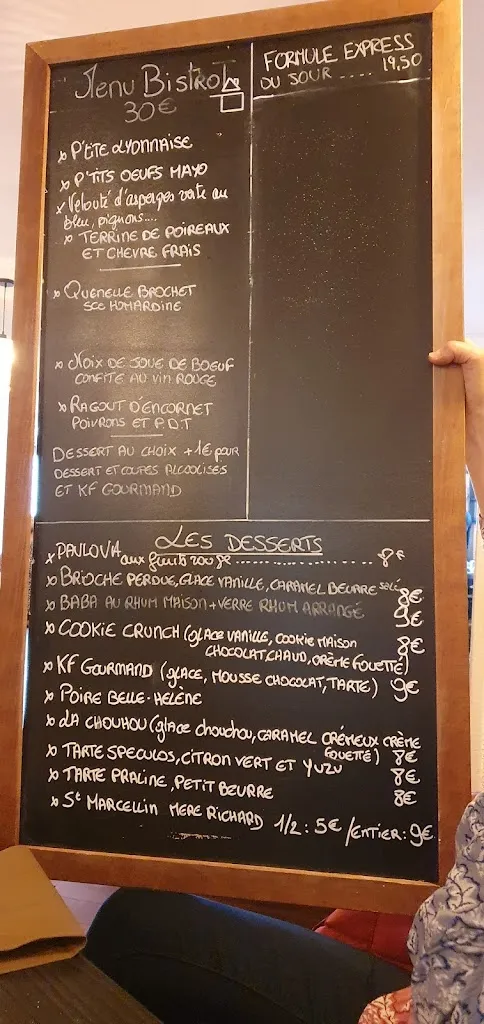 Menu Bistrot
30€
x P'tite Lyonnaise
x P'TITS OEUFS MAYO
x Velouté d'asperges verte au
bleu, pignons....
x TERRINE DE POIREAUX
ET CHEVRE FRAIS
x QUENELLE BROCHET
SCE HOMARDINE
x NOIX DE JOUE DE BOEUF
CONFITE AU VIN ROUGE
x RAGOUT D'ENCORNET
POIVRONS ET P.D.T
DESSERT AU CHOIX +1€ pour
DESSERT ET COUPES ALCOOLISES
ET KF GOURMAND
FORMULE EXPRESS
DU JOUR .... 19,50
LES DESSERTS
x PAVLOVA aux fruits rouge.................. 8€
x BRIOCHE PERDUE, GLACE VANILLE, CARAMEL BEURRE salé 8€
x BABA AU RHUM MAISON + VERRE RHUM ARRANGÉ 9€
x COOKIE CRUNCH (glace VANILLE, COOKIE MAISON 8€
CHOCOLAT CHAUD, CRÈME FOUETTÉ)
x KF GOURMAND (GLACE, MOUSSE CHOCOLAT, TARTE) 9€
x POIRE BELLE-HÉLÈNE
x LA CHOUHOU (glace chouchou, CARAMEL CRÉMEUX CRÈME
FOUETTÉ) 8€
x TARTE SPECULOS, CITRON VERT ET YUZU 8€
x TARTE PRALINE, PETIT BEURRE 8€
x St MARCELLIN MERE RICHARD 1/2 : 5€ / ENTIER : 9€